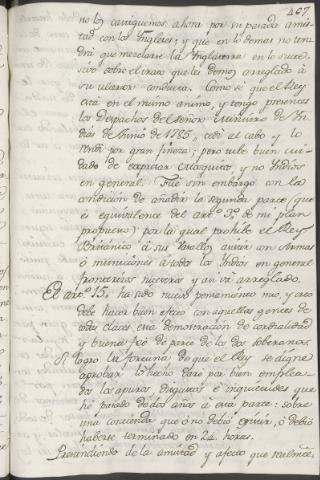 407
no los castiguemos ahora por su pasada amis-
tad con los Ingleses; y que en lo demas no ten-
drá que mezclarse la Inglaterra en lo succe-
sivo sobre el trato que les demos arreglado á
su ulterior conducta. Como sé que el Rey
está en el mismo animo, y tengo presentes
los Despachos del Señor Ministro de In-
dias de Junio de 1785, cedí al cabo y lo
vendí por gran fineza; pero tube buen cui-
dado de expresar Mosquitos y no Indios
en general. Fué sin embargo con la
condicion de añadir la segunda parte (que
es equivalente del artº 3º de mi plan
propuesto) por la qual prohibe el Rey
Británico á sus Vasallos asistir con Armas
ó municiones á todos los Indios en general
fronterizos nuestros y asi vá arreglado.
El artº 15. ha sido nuevo pensamiento mio, y creo
debe hacer buen efecto con aquellas gentes de
todas clases esta demostracion de cordialidad
y buena feé de parte de los dos Soberanos.
Si logro la fortuna de que el Rey se digne
aprobar lo hecho daré por bien emplea-
dos los apuros disgustos é inquietudes que
hé pasado de dos años á esta parte, sobre
una contienda que ó no debió existir, ó debió
haberse terminado en 24. horas.
Prescindiendo de la amistad y afecto que realmte